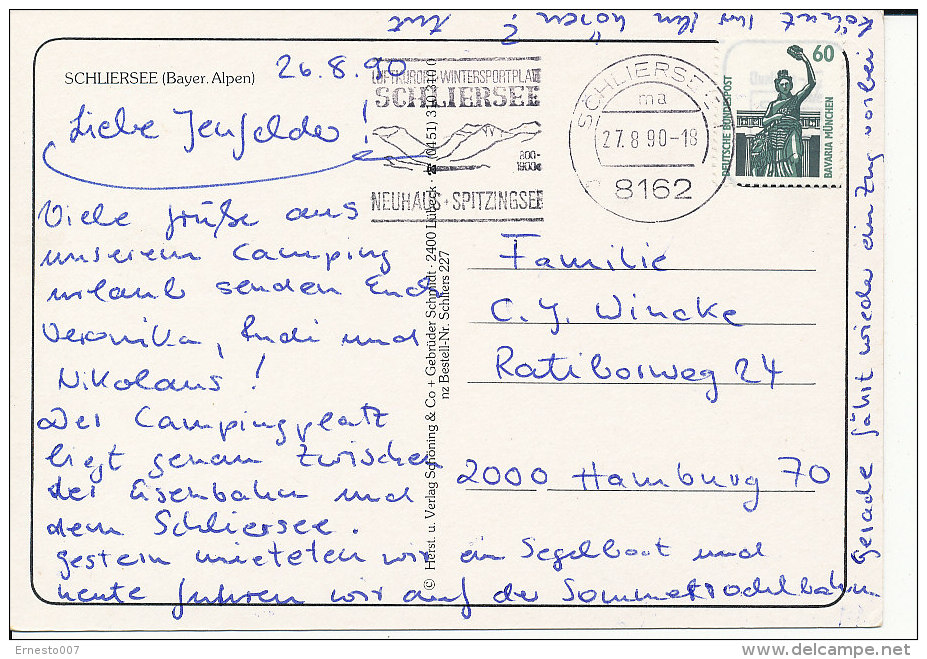 SCHLIERSEE (Bayer. Alpen)
26.8.90
Liebe Jenfelder!
Viele Grüße aus
unserem Camping
urlaub senden Euch
Veronika, Rudi und
Nikolaus!
Der Campingplatz
liegt genau zwischen
der Eisenbahn und
dem Schliersee.
Gestern mieteten wir ein Segelboot und
heute fuhren wir auf der Sommerrodelbahn.
Gerade fährt wieder ein Zug vorbei
könnt Ihr ihn hören?
LUFTKURORT-WINTERSPORTPLATZ
SCHLIERSEE
800-
1900m
NEUHAUS + SPITZINGSEE
SCHLIERSEE
ma
27.8.90-18
8162
60
DEUTSCHE BUNDESPOST
BAVARIA MÜNCHEN
© Herst. u. Verlag Schöning & Co + Gebrüder Schmidt · 2400 Lübeck · (0451) 3 10 31 0
nz Bestell-Nr. Schliers 227
Familie
C. J. Wincke
Ratiborweg 24
2000 Hamburg 70
Ernesto007
delcampe.net